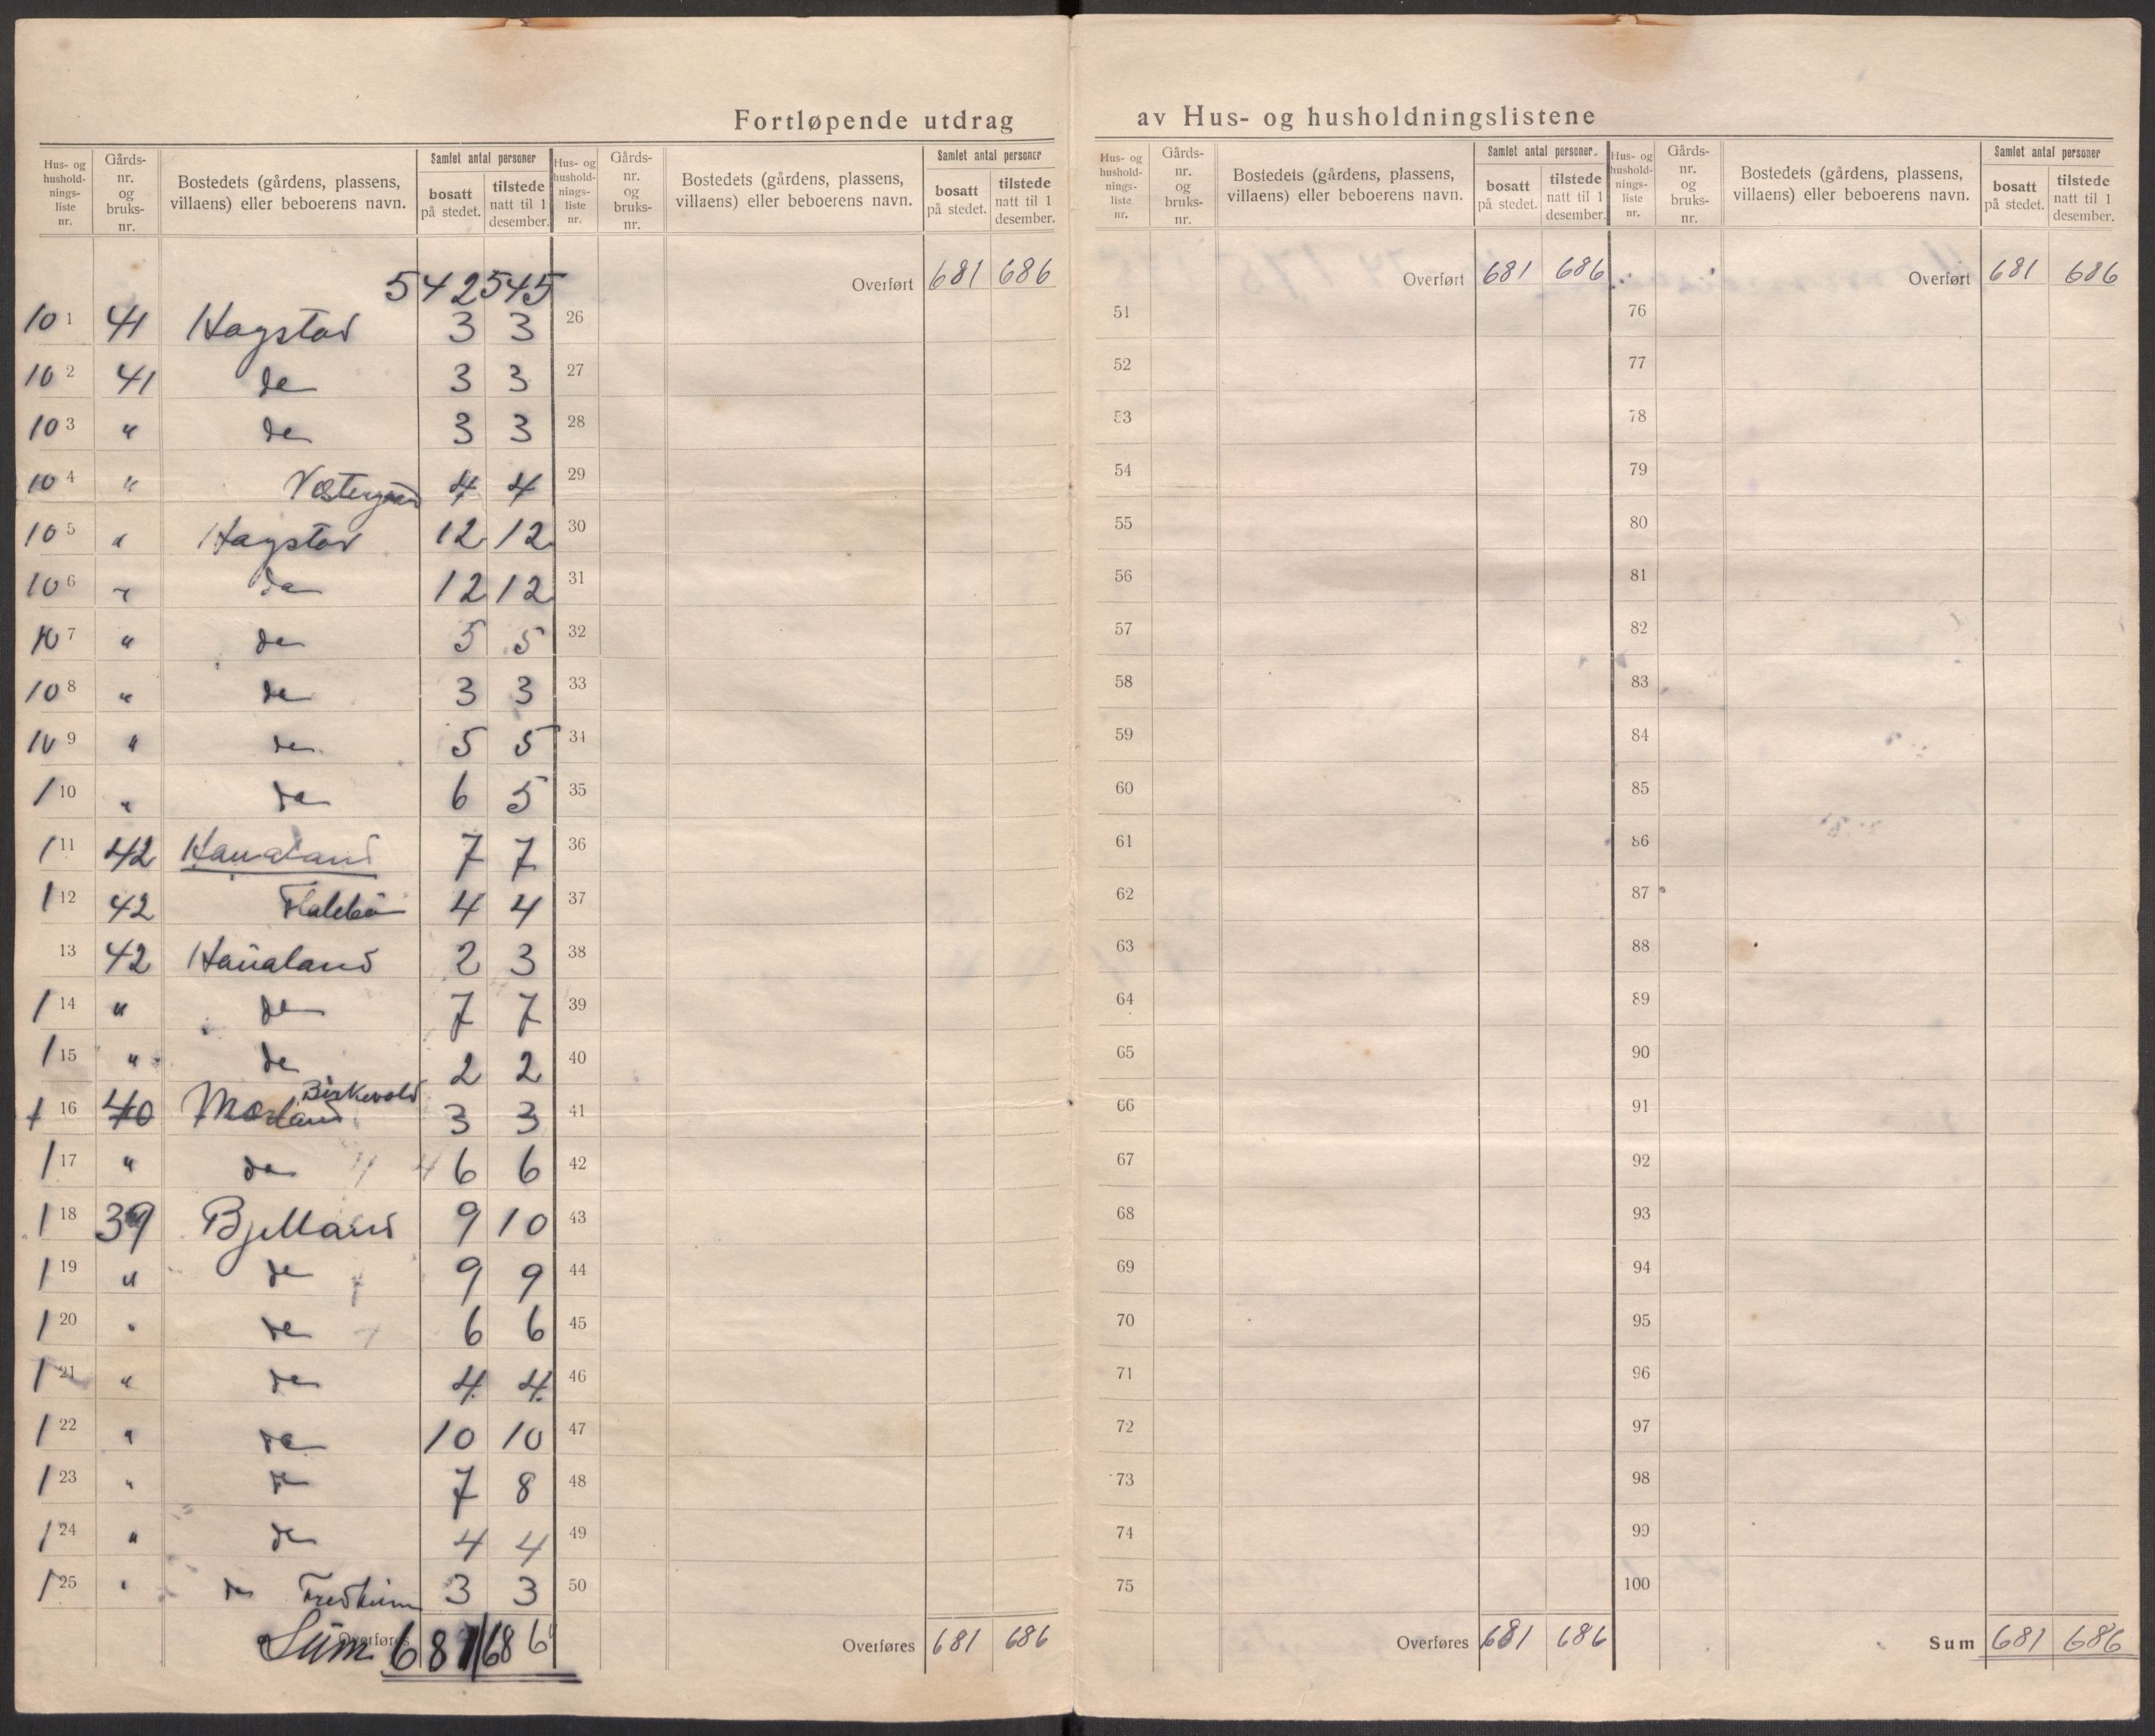 Fortløpende utdrag av Hus- og husholdningslistene
Hus- og hushold- nings- liste nr. Gårds- nr. og bruks- nr. Bostedets (gårdens, plassens, villaens) eller beboerens navn. Samlet antal personer bosatt på stedet. tilstede natt til 1 desember.
542 545
10 1 41 Hagstad 3 3
10 2 41 do 3 3
10 3 " do 3 3
10 4 " Vestergaard 4 4
10 5 " Hagstad 12 12
10 6 " do 12 12
10 7 " do 5 5
10 8 " do 3 3
10 9 " do 5 5
1 10 " do 6 5
1 11 42 Haualand 7 7
1 12 42 4 4
13 42 Haualand 2 3
1 14 " do 7 7
1 15 " do 2 2
1 16 40 Morland Birkevold 3 3
1 17 " do 6 6
1 18 39 Bjelland 9 10
1 19 " do 9 9
1 20 " do 6 6
1 21 " do 4 4
1 22 " do 10 10
1 23 " do 7 8
1 24 " do 4 4
1 25 " do Fredheim 3 3
Overføres Sum 681 686
Hus- og hushold- nings- liste nr. Gårds- nr. og bruks- nr. Bostedets (gårdens, plassens, villaens) eller beboerens navn. Samlet antal personer bosatt på stedet. tilstede natt til 1 desember.
Overført 681 686
26
27
28
29
30
31
32
33
34
35
36
37
38
39
40
41
42
43
44
45
46
47
48
49
50
Overføres 681 686
Hus- og hushold- nings- liste nr. Gårds- nr. og bruks- nr. Bostedets (gårdens, plassens, villaens) eller beboerens navn. Samlet antal personer. bosatt på stedet. tilstede natt til 1 desember.
Overført 681 686
51
52
53
54
55
56
57
58
59
60
61
62
63
64
65
66
67
68
69
70
71
72
73
74
75
Overføres 681 686
Hus- og hushold- nings- liste nr. Gårds- nr. og bruks- nr. Bostedets (gårdens, plassens, villaens) eller beboerens navn. Samlet antal personer bosatt på stedet. tilstede natt til 1 desember.
Overført 681 686
76
77
78
79
80
81
82
83
84
85
86
87
88
89
90
91
92
93
94
95
96
97
98
99
100
Sum 681 686